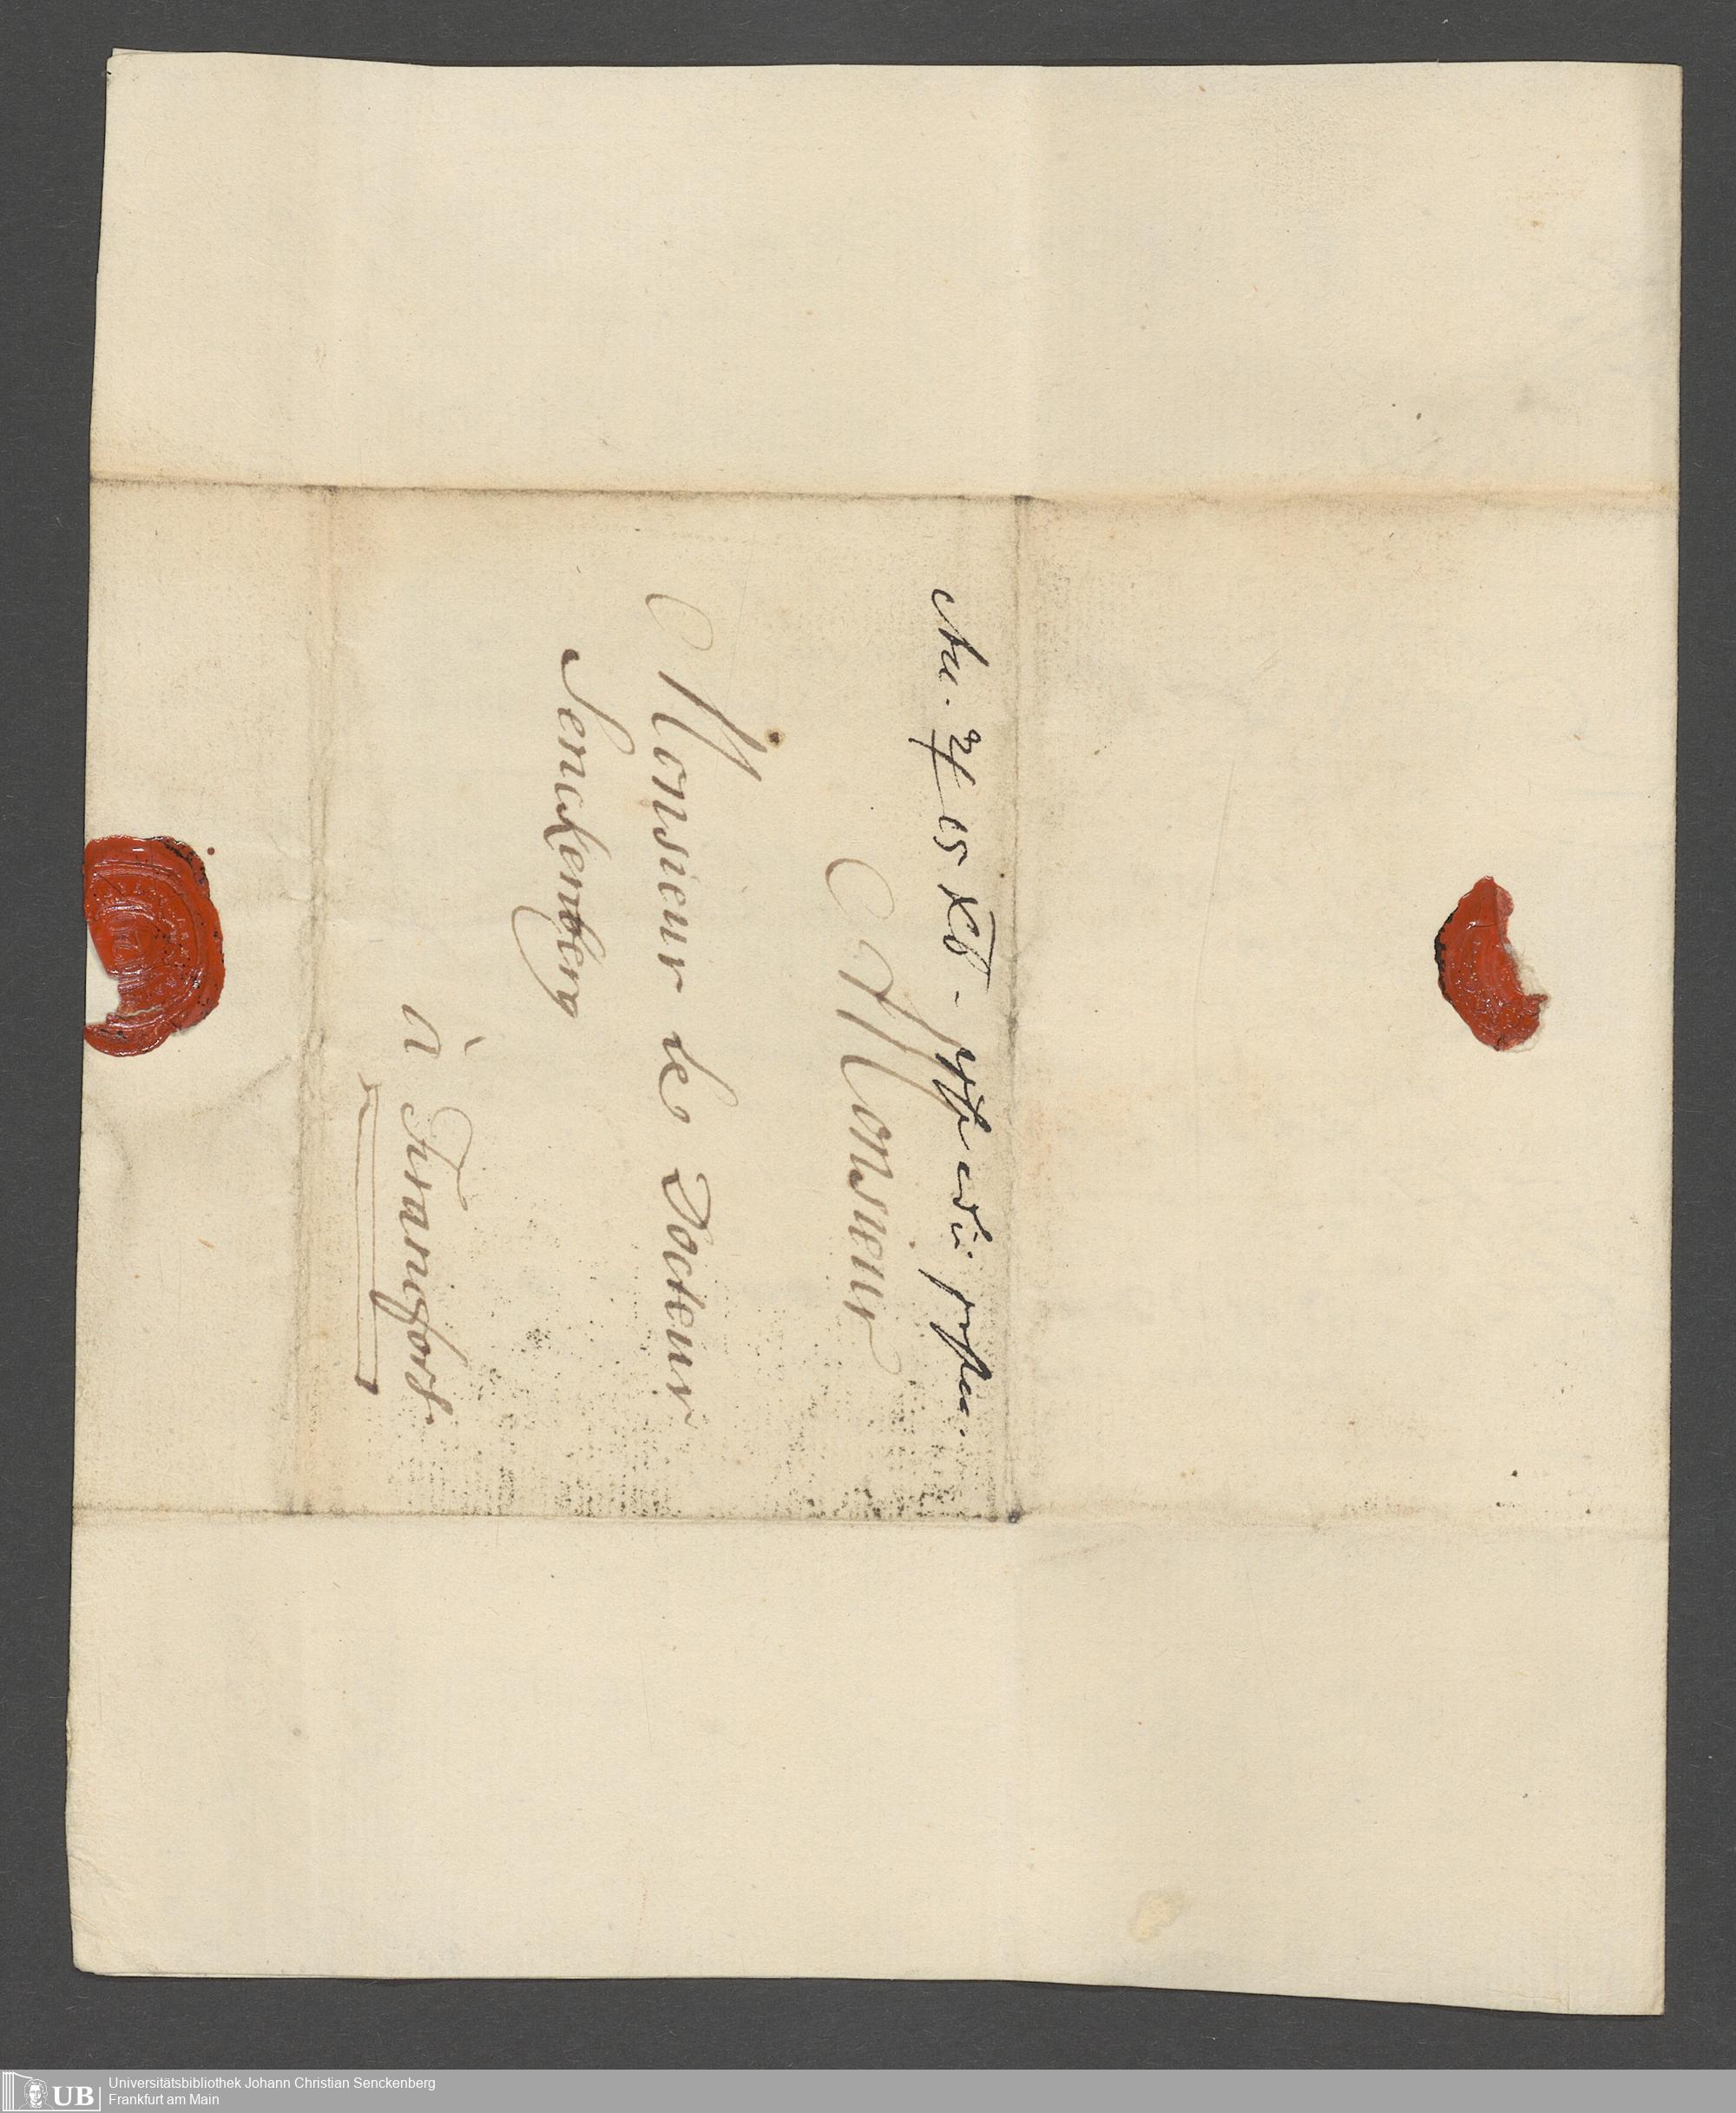 15 Xb
Monsieur
Monsieur le Docteur
Senckenberg
à Francfort.
UB
Universitätsbibliothek Johann Christian Senckenberg
Frankfurt am Main